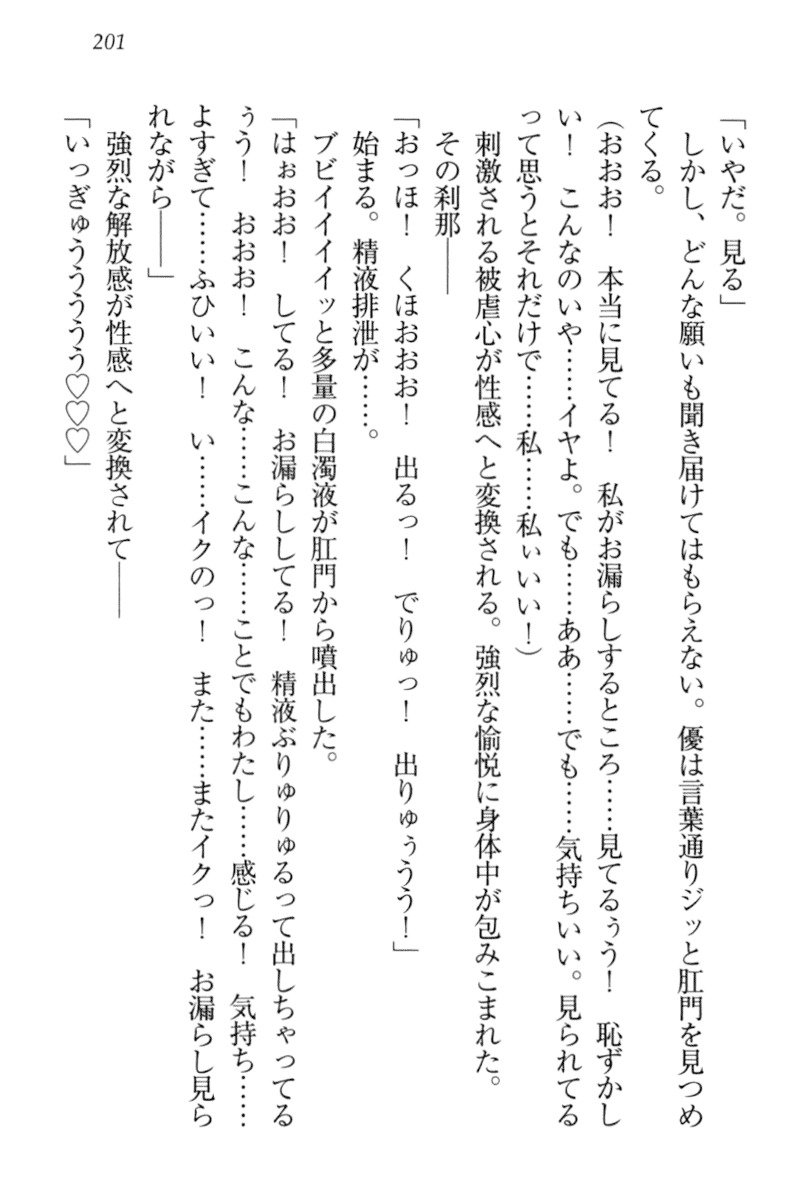 201
「いやだ。見る」
しかし、どんな願いも聞き届けてはもらえない。優は言葉通りジッと肛門を見つめ
てくる。
（おおお！　本当に見てる！　私がお漏らしするところ……見てるぅう！　恥ずかし
い！　こんなのいや……イヤよ。でも……ああ……でも……気持ちいい。見られてる
って思うとそれだけで……私……私ぃいい！）
刺激される被虐心が性感へと変換される。強烈な愉悦に身体中が包みこまれた。
その刹那――
「おっほ！　くほおおお！　出るっ！　でりゅっ！　出りゅぅうう！」
始まる。精液排泄が……。
ブビイイイイッと多量の白濁液が肛門から噴出した。
「はぉおお！　してる！　お漏らししてる！　精液ぶりゅりゅるって出しちゃってる
ぅう！　おおお！　こんな……こんな……ことでもわたし……感じる！　気持ち……
よすぎて……ふひいい！　い……イクのっ！　また……またイクっ！　お漏らし見ら
れながら――」
強烈な解放感が性感へと変換されて――
「いっぎゅううううう♡♡♡」